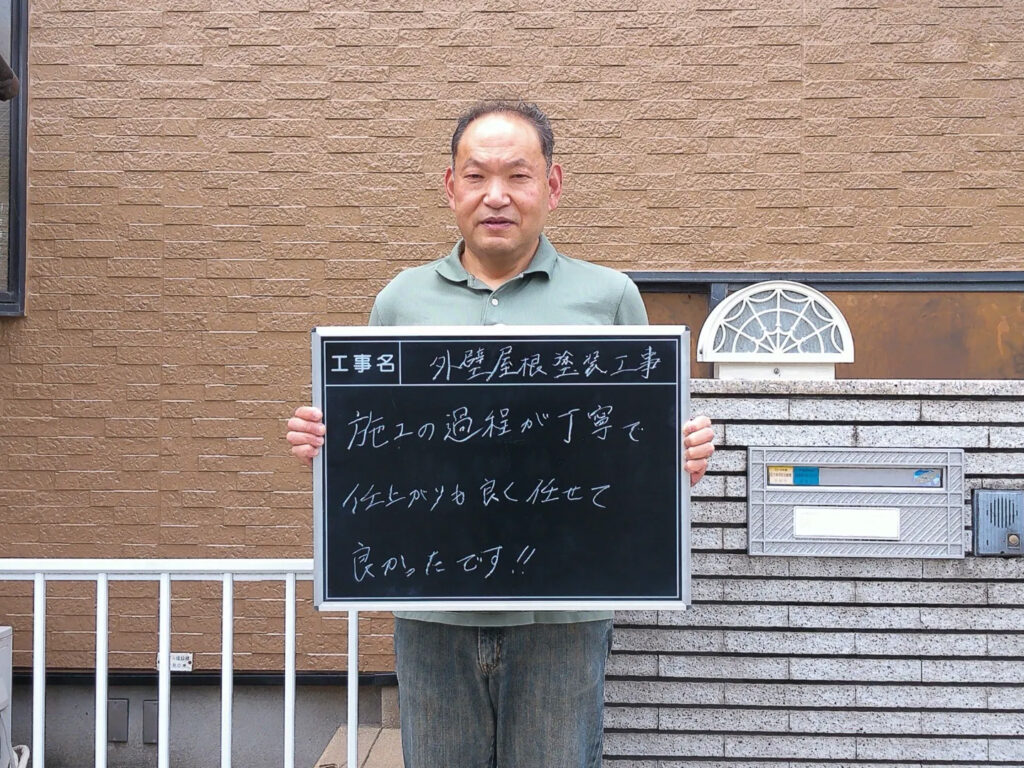 工事名 外壁屋根塗装工事
施工の過程が丁寧で
仕上がりも良く任せて
良かったです!!